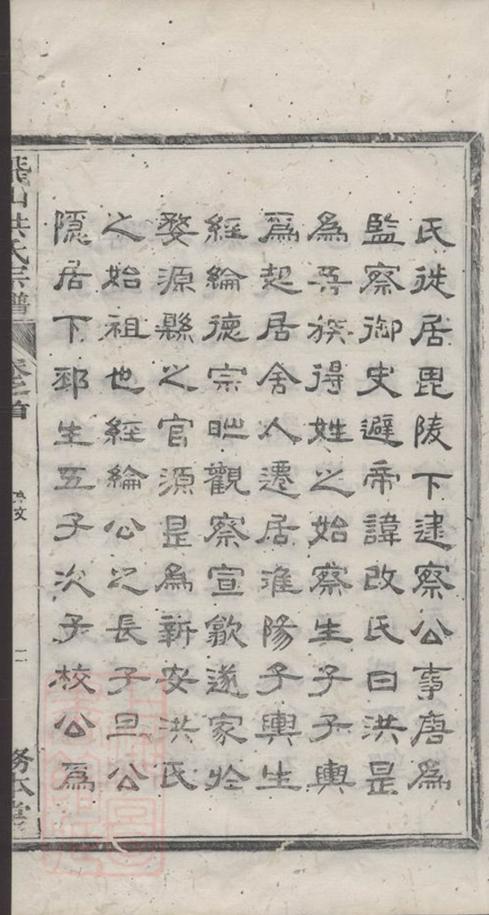 氏徙居毘陵下逮察公事唐爲
監察御史避帝諱改氏曰洪是
為吾族得姓之始察生子子輿
爲起居舍人遷居淮陽子輿生
經綸德宗時觀察宣歙遂家於
婺源縣之官源是為新安洪氏
之始祖也經綸公之長子旦公
隱居下邳生五子次子校公爲
山洪氏宗譜
卷之首
二
務本堂